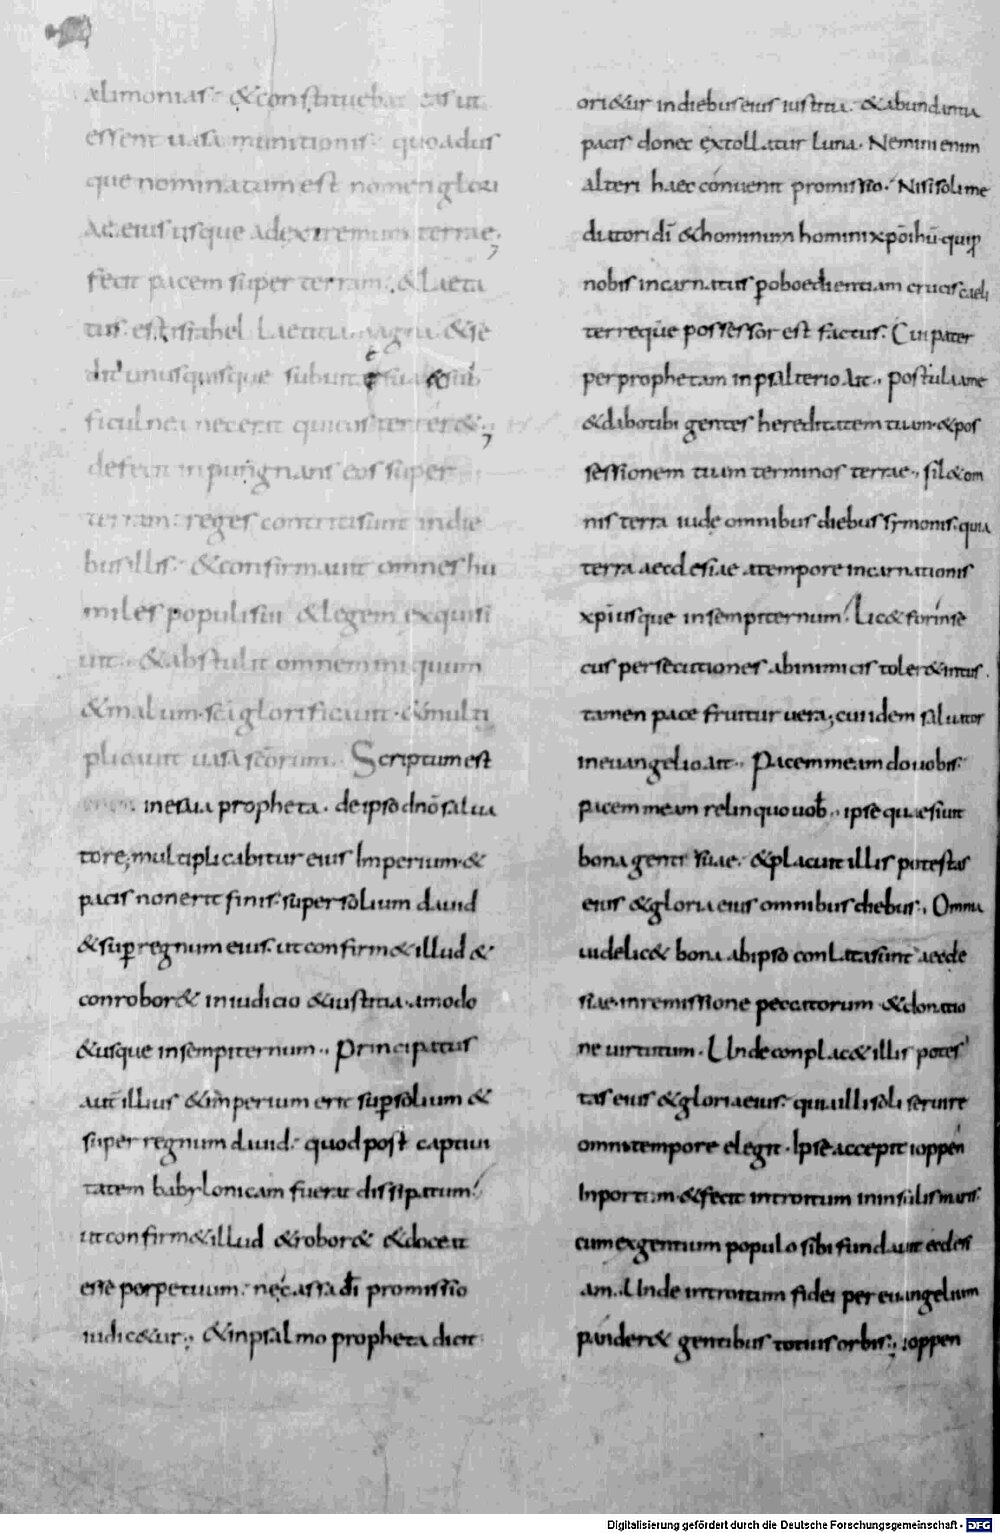 alimonias. &constituebat eas ut
essent uasa munitionis. quoadus
que nominatum est nomen glori
ae eius usque adextremum terrae;
fecit pacem super terram. & laeta
tus est israhel laetitia magna. &se
dit unusquisque subuite sua &sub
ficulnea necerat quieos terrer&;
defecit inpugnans eos super
terram. reges contritisunt indie
bus illis. &confirmauit omnes hu
miles populi sui &legem exquisi
uit. &abstulit omnem iniquum
&malum. scā glorificauit. &multi
plicauit uasa scōrum. Scriptum est
inesaia propheta. deipso dnō salua
tore; multiplicabitur eius Imperium. &
pacis nonerit finis. super solium dauid
&sup regnum eius. ut confirm& illud &
conrobor& iniudicio &iustitia. amodo
&usque insempiternum., Principatus
aut illius &imperium erit sup solium &
super regnum dauid. quod post captiui
tatem babylonicam fuerat dissipatum.
ut confirm& illud &robor& &doceat
esse perpetuum. necassa dī promissio
iudic&ur., &inpsalmo propheta dicit
ori&ur indiebus eius iustitia. &abundantia
pacis donec extollatur luna. Nemini enim
alteri haec conuenit promissio. Nisi soli me
diatori dī &hominum homini xpō ihū. quip
nobis incarnatus p oboedientiam crucis caeli
terreque possessor est factus. Cui pater
per prophetam inpsalterio ait., postula ame
&dabo tibi gentes hereditatem tuam. &pos
sessionem tuam terminos terrae., sil& om
nis terra iude omnibus diebus symonis. quia
terra aecclesiae atempore incarnationis
xpī usque insempiternum. lic& forinse
cus persecutiones abinimicis toler& intus.
tamen pace fruitur uera; cui idem saluator
ineuangelio ait., Pacem meam do uobis.
pacem meam relinquo uob., ipse quaesiuit
bona genti suae. &placuit illis potestas
eius &gloria eius omnibus diebus., Omnia
uidelic& bona abipso conlata sunt aeccle
siae. inremissione peccatorum. &donatio
ne uirtutum. Unde conplac& illis potes
tas eius &gloria eius. quia illi soli seruire
omni tempore elegit. Ipse accepit ioppen
Inportum. &fecit introitum ininsulis maris.
cum exgentium populo sibi fundauit eccles
am., Unde introitum fidei per euangelium
pander& gentibus totius orbis., ioppen